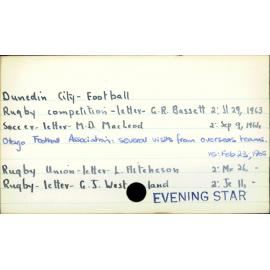 Dunedin City - Football
Rugby competition - letter - G.R. Bassett 2: Jl 29, 1963
Soccer - letter - M.D. MacLeod 2: Sep 9, 1964
Otago Football Association: several visits from overseas teams.
15: Feb 23, 1965
Rugby Union - letter - L. Aitcheson 2: Mr 26, -
Rugby - letter - G.J. West land 2: Je 11, -
EVENING STAR